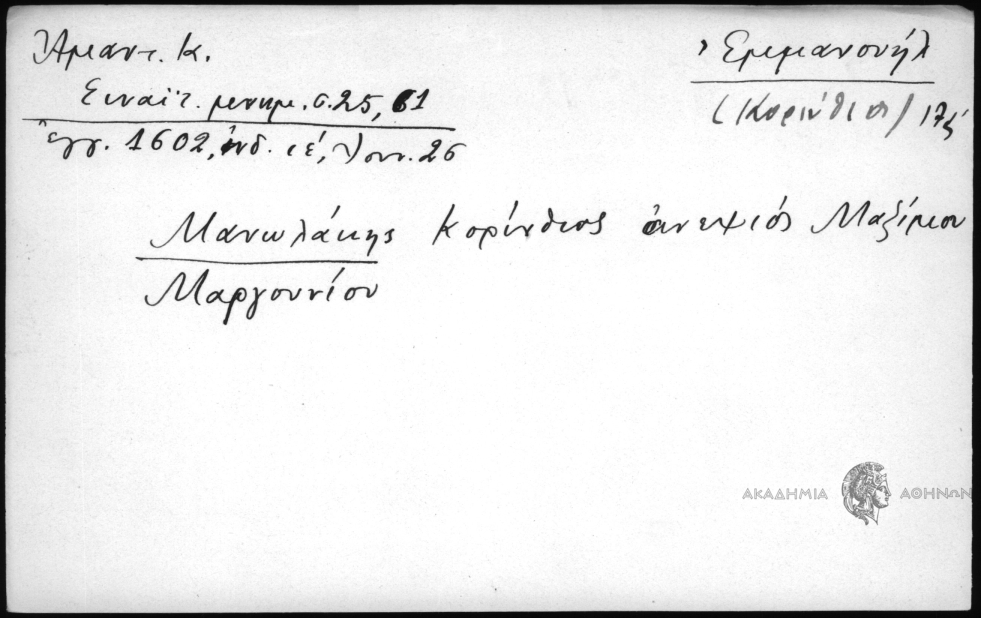 Ἀμαντ. Κ.
Σιναϊτ. μνημ. σ. 25, 61
ἔγγ. 1602, ἰνδ. ιέ, Ἰουν. 26
Ἐμμανουήλ
(Κορίνθιος) 17ς΄
Μανωλάκης Κορίνθιος ἀνεψιός Μαξίμου
Μαργουνίου
ΑΚΑΔΗΜΙΑ ΑΘΗΝΩΝ